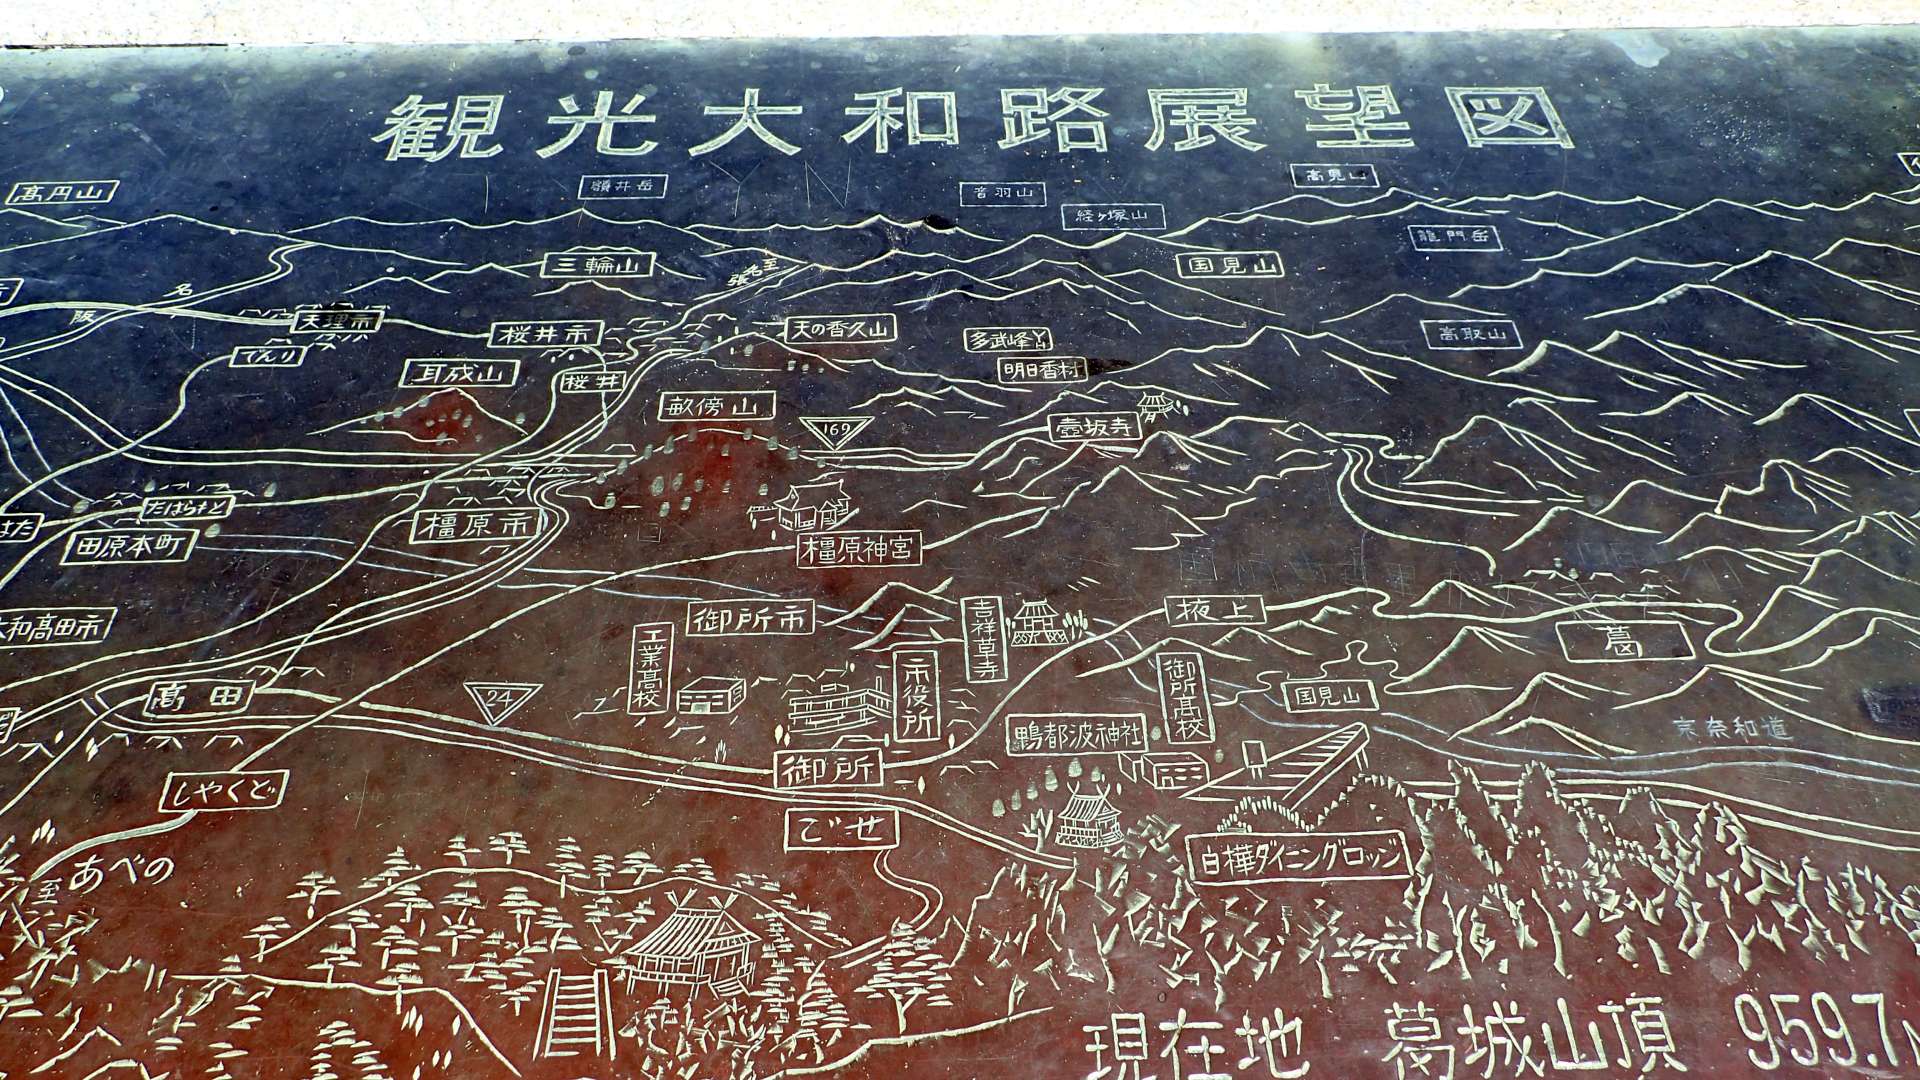 観光大和路展望図
高円山
額井岳
音羽山
高見山
経ヶ塚山
龍門岳
三輪山
至名張
国見山
名
阪
天理市
てんり
桜井市
天の香久山
多武峰
高取山
耳成山
桜井
明日香村
畝傍山
169
壺坂寺
たはらもと
橿原市
田原本町
橿原神宮
大和高田市
御所市
吉祥草寺
掖上
葛
工業高校
市役所
御所高校
国見山
高田
24
鴨都波神社
京奈和道
御所
しやくど
ごせ
白樺ダイニングロッジ
至あべの
現在地 葛城山頂 959.7M